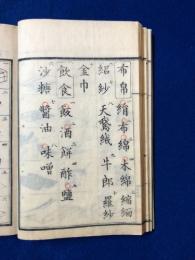 布帛 絹 布 綿 木綿 縮緬
紹 紗 天鵞絨 牛郎 羅紗
金巾
飲食 飯 酒 餅 酢 鹽
沙糖 醬油 味噌